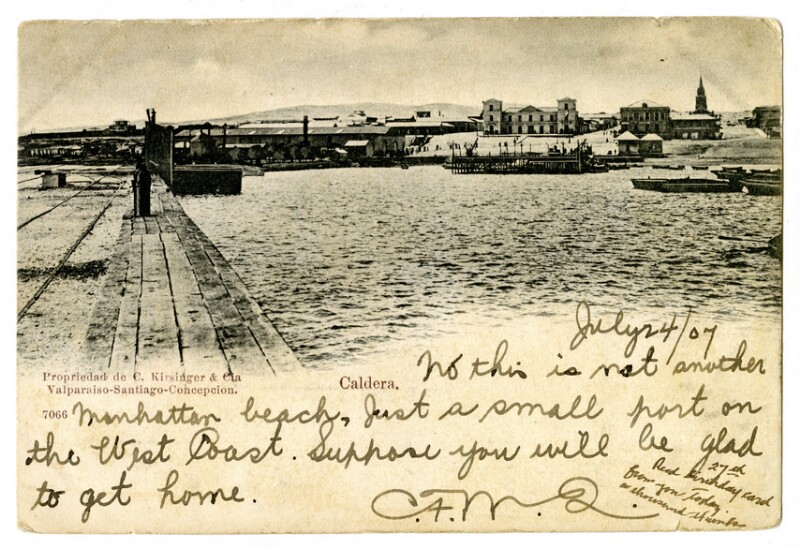 July 24/07
Propriedad de C. Kirsinger & Cia
Valparaiso-Santiago-Concepcion.
Caldera.
7066
No this is not another
Manhattan beach, Just a small port on
the West Coast. Suppose you will be glad
to get home.
27th
Recd Birthday card
from you today.
a thousand thanks